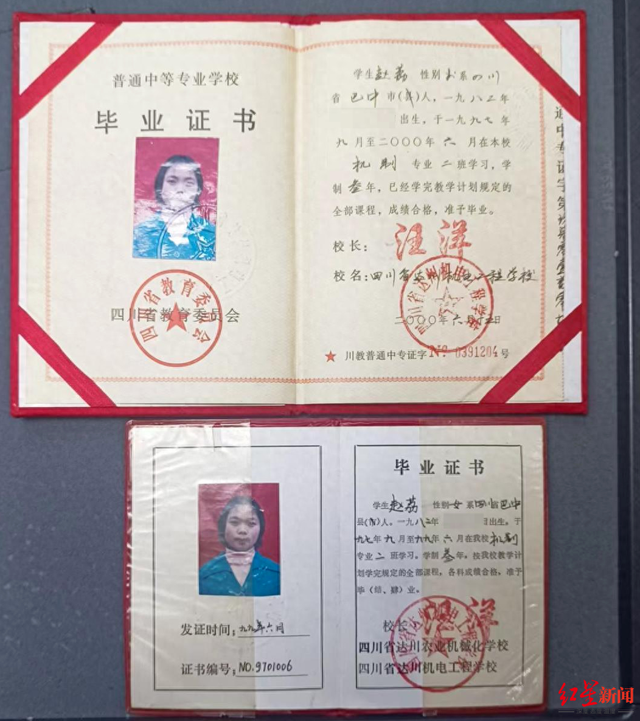 普通中等专业学校
毕业证书
四川省教育委员会
学生赵荔 性别女系四川
省巴中市(县)人，一九八二年
出生，于一九九七年
九月至二〇〇〇年六月在本校
机制专业二班学习，学
制叁年，已经学完教学计划规定的
全部课程，成绩合格，准予毕业。
校长：汪洋
校名：四川省达川机电工程学校
二〇〇〇年六月
★川教普通中专证字Nº 0391204号
发证时间：九九年六月
证书编号：NO.9701006
毕业证书
学生赵荔 性别女系四川省巴中
县(市)人。一九八二年 出生。于
九七年九月至九九年六月在我校机制
专业二班学习。学制叁年。按我校教学计
划学完规定的全部课程，各科成绩合格，准予
毕(结、肄)业。
校长 汪洋
四川省达川农业机械化学校
四川省达川机电工程学校
红星新闻